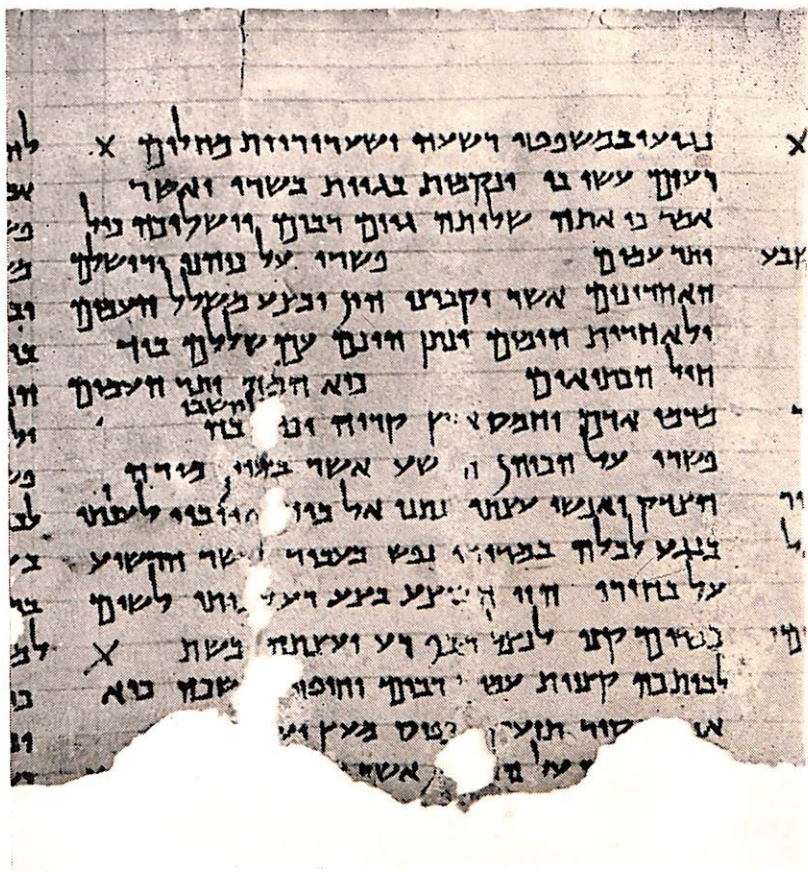 נגועו במשפטי רשעה ושערוריות מחלים X
רעים עשו בו ונקמות בגוית בשרו ואשר
אמר כי אתה שלותה גוים רבים וישלוכה כול
יתר עמים פשרו על כוהני ירושלם
האחרונים אשר יקבוצו הון ובצע משלל העמים
ולאחרית הימים ינתן הונם עם שללם ביד
חיל הכתיאים כיא המה יתר העמים
מדמי אדם וחמס ארץ קריה וכול יושבי בה
פשרו על הכוהן ה שע אשר בעוון מורה
הצדק ואנשי עצתו נתנו אל ביד אויביו לענותו
בנגע לכלה במרורי נפש בעבור אשר הרשיע
על בחירו הוי הבוצע בצע רע לביתו לשום
במרום קנו לנצל מכף רע יעצתה בשת X
לביתכה קצוות עמים רבים וחוטי שכה כיא
קיר תזעק מעץ
על אשר